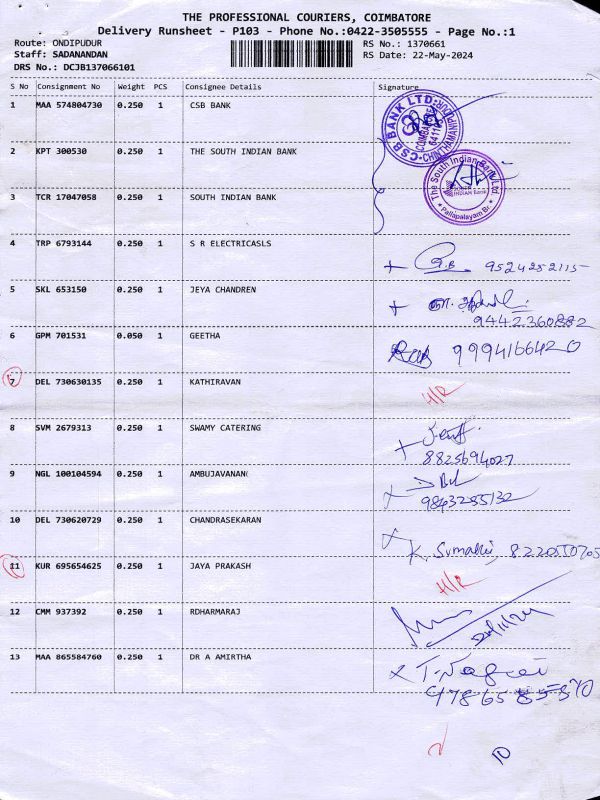 THE PROFESSIONAL COURIERS, COIMBATORE
Delivery Runsheet - P103 - Phone No.:0422-3505555 - Page No.:1
Route: ONDIPUDUR RS No.: 1370661
Staff: SADANANDAN RS Date: 22-May-2024
DRS No.: DCJB137066101
S No Consignment No Weight PCS Consignee Details Signature
1 MAA 574804730 0.250 1 CSB BANK
CSB BANK LTD.
2 KPT 300530 0.250 1 THE SOUTH INDIAN BANK
The South Indian Bank Ltd.
Pallapalayam Br.
3 TCR 17047058 0.250 1 SOUTH INDIAN BANK
4 TRP 6793144 0.250 1 S R ELECTRICASLS 9524252115
5 SKL 653150 0.250 1 JEYA CHANDREN
9442360882
6 GPM 701531 0.050 1 GEETHA 9994166420
7 DEL 730630135 0.250 1 KATHIRAVAN H/R
8 SVM 2679313 0.250 1 SWAMY CATERING
8825694027
9 NGL 100104594 0.250 1 AMBUJAVANAN
9843255132
10 DEL 730620729 0.250 1 CHANDRASEKARAN
11 KUR 695654625 0.250 1 JAYA PRAKASH H/R
12 CMM 937392 0.250 1 RDHARMARAJ
13 MAA 865584760 0.250 1 DR A AMIRTHA
10